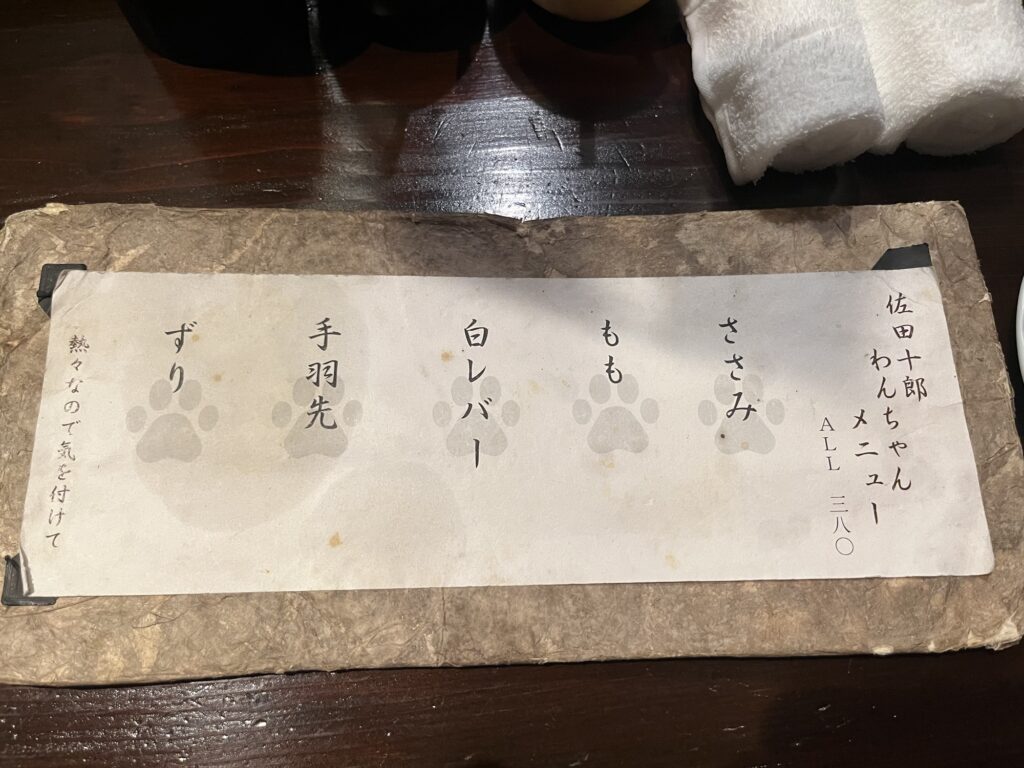 佐田十郎
わんちゃん
メニュー
ALL 三八〇
ささみ
もも
白レバー
手羽先
ずり
熱々なので気を付けて